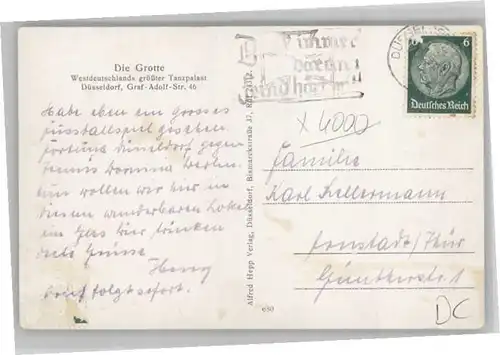 Die Grotte
Westdeutschlands größter Tanzpalast
Düsseldorf, Graf-Adolf-Str. 46
Habe eben ein grosses
Fussballspiel gesehen
Fortuna Düsseldorf gegen
Tennis Borussia Berlin.
Nun wollen wir hier in
diesem wunderbaren Lokal
ein Glas Bier trinken
Viele Grüsse
Brief folgt sofort.
Alfred Hepp Verlag, Düsseldorf, Bismarckstraße 37,
650
6
Deutsches Reich
X 4000
Familie
Karl Kellermann
Arnstadt/Thür
Güntherstr. 1
DC